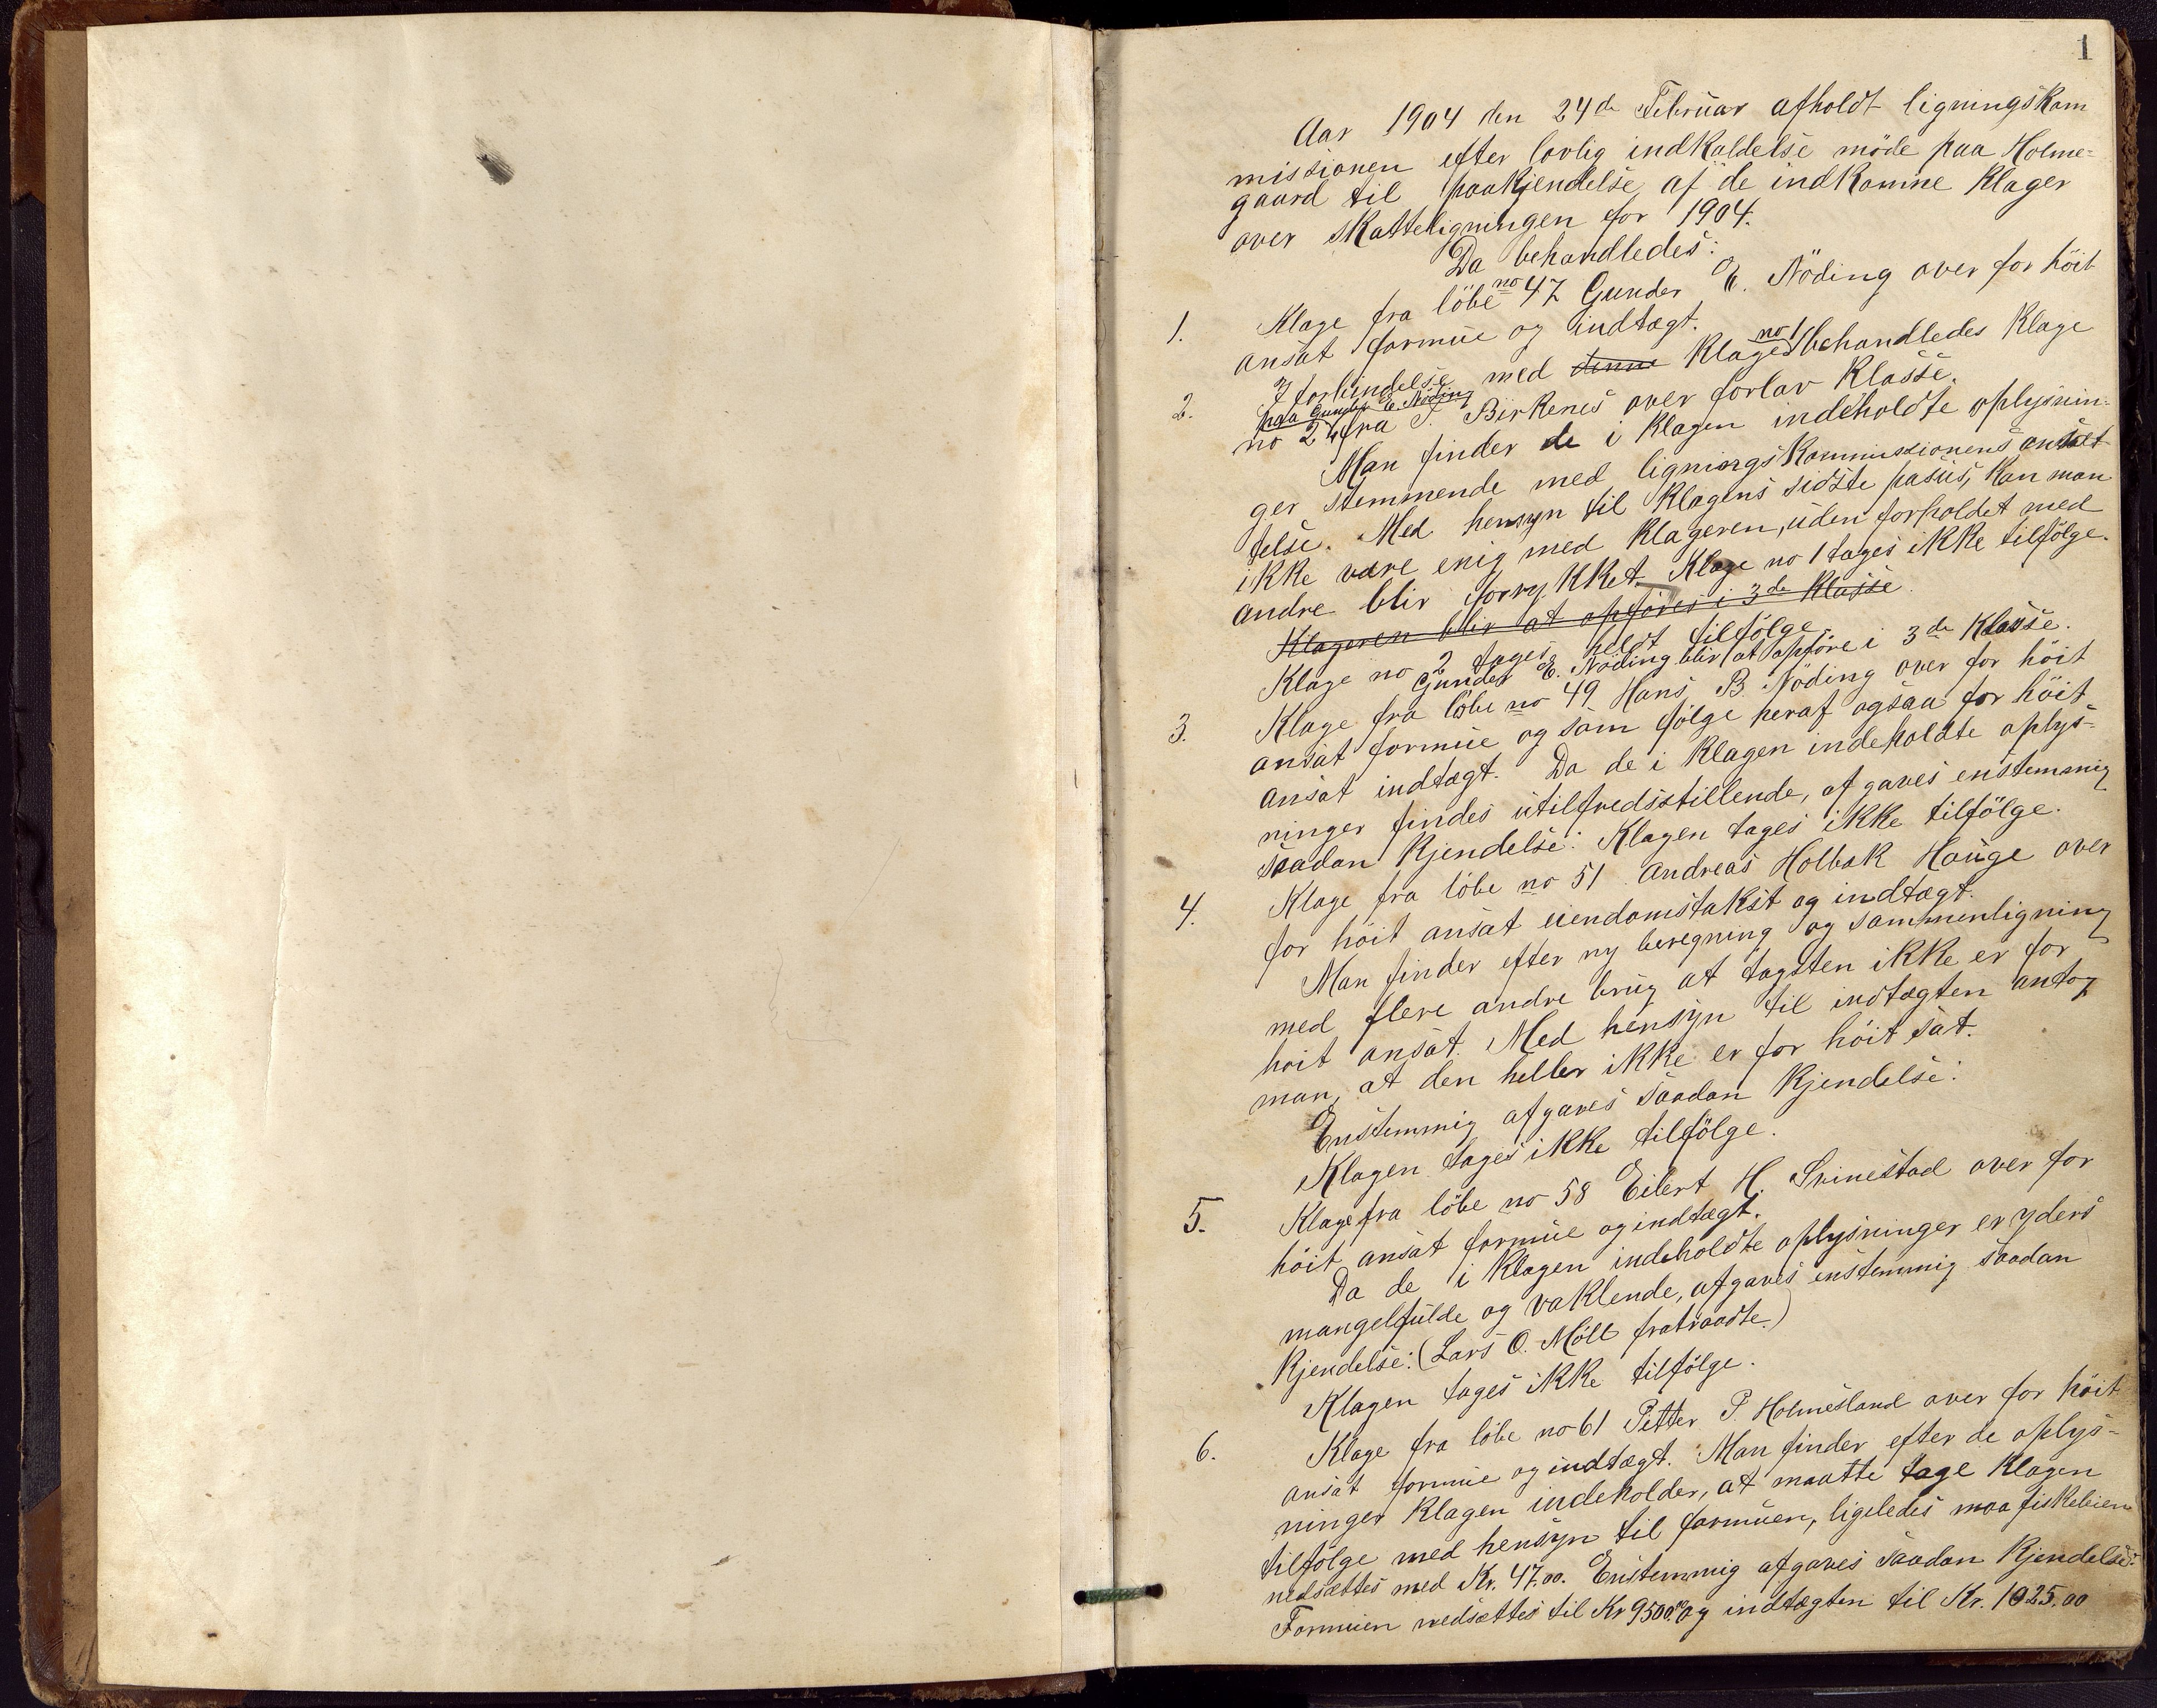 1
Aar 1904 den 24de Februar afholdt ligningskom
missionen efter lovlig indkaldelse möde paa Holme=
gaard til paakjendelse af de indkomne klager
over skatteligningen for 1904.
Da behandledes:
1. Klage fra löbe no 47 Gunder E. Nöding over for höit
ansat formue og indtægt.
2. I forbindelse med denne klage no 1 behandledes klage
paa Gunder E. Nöding
no 2 fra T. Birkenes over forlav klasse.
Man finder de i klagen indeholdte oplysnin-
ger stemmende med ligningskommissionens ansæt
telse. Med hensyn til klagens sidste pasus, kan man
ikke være enig med klageren, uden forholdet med
andre blir forrykket. Klage no 1 tages ikke tilfölge.
Klageren blir at opföres i 3de klasse
Klage no 2 tages heldt tilfölge.
Gunder E. Nöding blir at opföre i 3de klasse.
3. Klage fra löbe no 49 Hans B. Nöding over for höit
ansat formue og som fölge heraf ogsaa for höit
ansat indtægt. Da de i klagen indeholdte oplys-
ninger findes utilfredsstillende, afgaves enstemmig
saadan kjendelse: Klagen tages ikke tilfölge.
4. Klage fra löbe no 51 Andreas Holbæk Hauge over
for höit ansat eiendomstakst og indtægt.
Man finder efter ny beregning og sammenligning
med flere andre brug at tagsten ikke er for
höit ansat. Med hensyn til indtægten antog
man, at den heller ikke er for höit sat.
Enstemmig afgaves saadan kjendelse:
Klagen tages ikke tilfölge.
5. Klage fra löbe no 58 Eilert H. Svinestad over for
höit ansat formue og indtægt.
Da de i klagen indeholdte oplysninger er yders
mangelfulde og vaklende, afgaves enstemmig saadan
kjendelse: (Lars O. Möll fratraadte.)
Klagen tages ikke tilfölge.
6. Klage fra löbe no 61 Petter P. Holmesland over for höit
ansat formue og indtægt. Man finder efter de oplys-
ninger klagen indeholder, at maatte tage klagen
tilfölge med hensyn til formuen, ligeledes maa fiskeleien
nedsættes med Kr. 47.00. Enstemmig afgaves saadan kjendelse:
Formuen nedsættes til Kr 9500.00 og indtægten til Kr. 1025.00